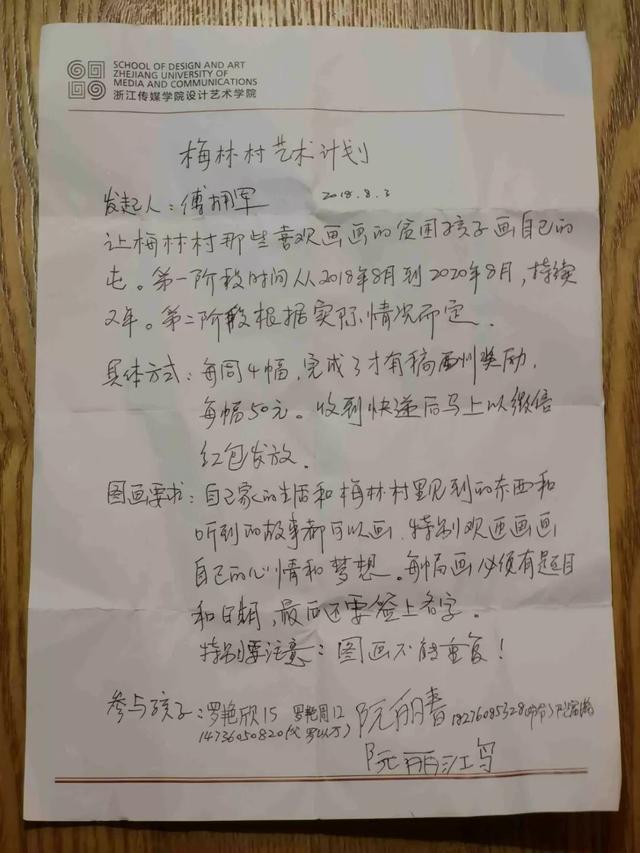 SCHOOL OF DESIGN AND ART
ZHEJIANG UNIVERSITY OF
MEDIA AND COMMUNICATIONS
浙江传媒学院设计艺术学院
梅林村艺术计划
发起人：傅拥军 2018.8.3
让梅林村那些喜欢画画的贫困孩子画自己的
屯。第一阶段时间从2018年8月到2020年8月，持续
2年。第二阶段根据实际情况而定。
具体方式：每周4幅，完成了才有稿酬奖励，
每幅50元。收到快递后马上以微信
红包发放。
图画要求：自己家的生活和梅林村里见到的东西和
听到的故事都可以画，特别欢迎画画
自己的心情和梦想。每幅画必须有题目
和日期，最后还要签上名字。
特别要注意：图画不能重复！
参与孩子：罗艳欣15 罗艳周12 阮丽春 18276085328
14736050820
阮丽江